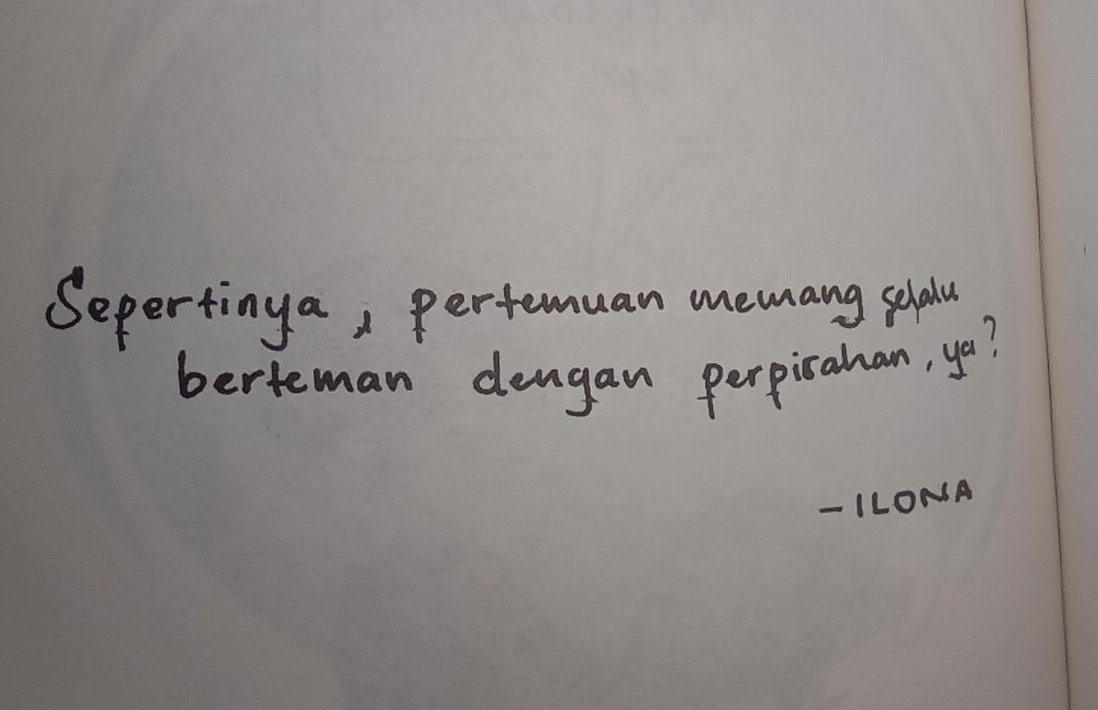 Sepertinya, pertemuan memang selalu
berteman dengan perpisahan, ya?
-ILONA